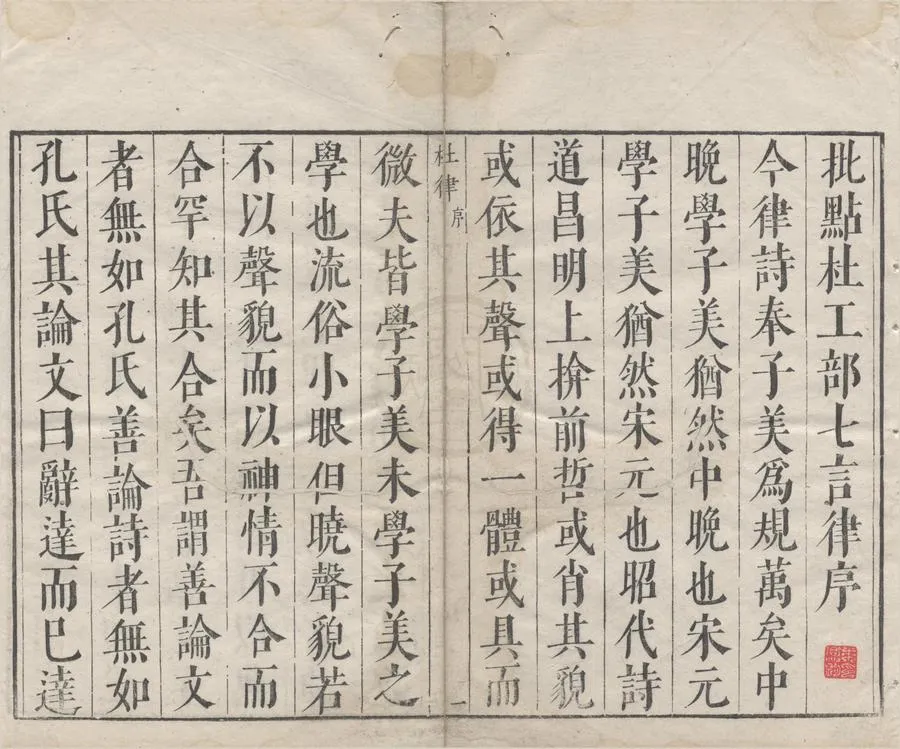 批點杜工部七言律序
今律詩奉子美爲規萬矣中
晚學子美猶然中晚也宋元
學子美猶然宋元也昭代詩
道昌明上揜前哲或肖其貌
或依其聲或得一體或具而
杜律 序
一
微夫皆學子美未學子美之
學也流俗小眼但曉聲貌若
不以聲貌而以神情不合而
合罕知其合矣吾謂善論文
者無如孔氏善論詩者無如
孔氏其論文曰辭達而已達